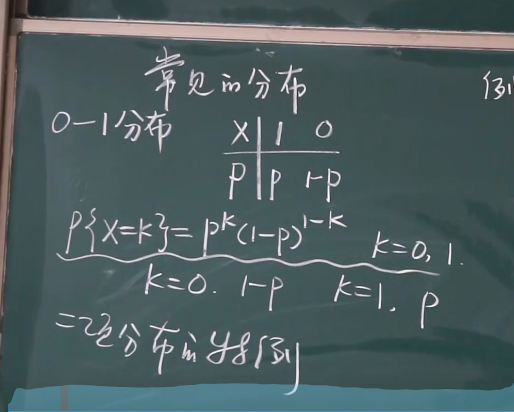 常见的分布
例
0-1分布
X 1 0
P p 1-p
P{X=k}=p^k(1-p)^{1-k} k=0,1.
k=0. 1-p k=1. p
=项分布的特例